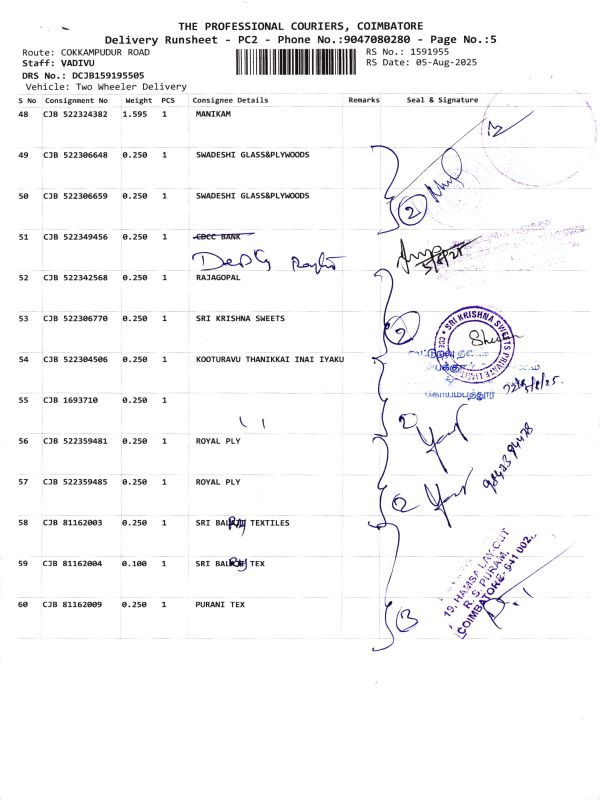 THE PROFESSIONAL COURIERS, COIMBATORE
Delivery Runsheet - PC2 - Phone No.:9047080280 - Page No.:5
Route: COKKAMPUDUR ROAD RS No.: 1591955
Staff: VADIVU RS Date: 05-Aug-2025
DRS No.: DCJB159195505
Vehicle: Two Wheeler Delivery
S No Consignment No Weight PCS Consignee Details Remarks Seal & Signature
48 CJB 522324382 1.595 1 MANIKAM
49 CJB 522306648 0.250 1 SWADESHI GLASS&PLYWOODS
50 CJB 522306659 0.250 1 SWADESHI GLASS&PLYWOODS
2
51 CJB 522349456 0.250 1 CDCC BANK
5/8/25
52 CJB 522342568 0.250 1 RAJAGOPAL
53 CJB 522306770 0.250 1 SRI KRISHNA SWEETS
2
SRI KRISHNA SWEETS PRIVATE LIMITED
54 CJB 522304506 0.250 1 KOOTURAVU THANIKKAI INAI IYAKU
கோயமபுத்தூர்
55 CJB 1693710 0.250 1
2
56 CJB 522359481 0.250 1 ROYAL PLY
98423 94478
57 CJB 522359485 0.250 1 ROYAL PLY
2
58 CJB 81162003 0.250 1 SRI TEXTILES
59 CJB 81162004 0.100 1 SRI TEX
19, HAMSA LAY-OUT
R. S. PURAM,
COIMBATORE- 641 002.
60 CJB 81162009 0.250 1 PURANI TEX
3